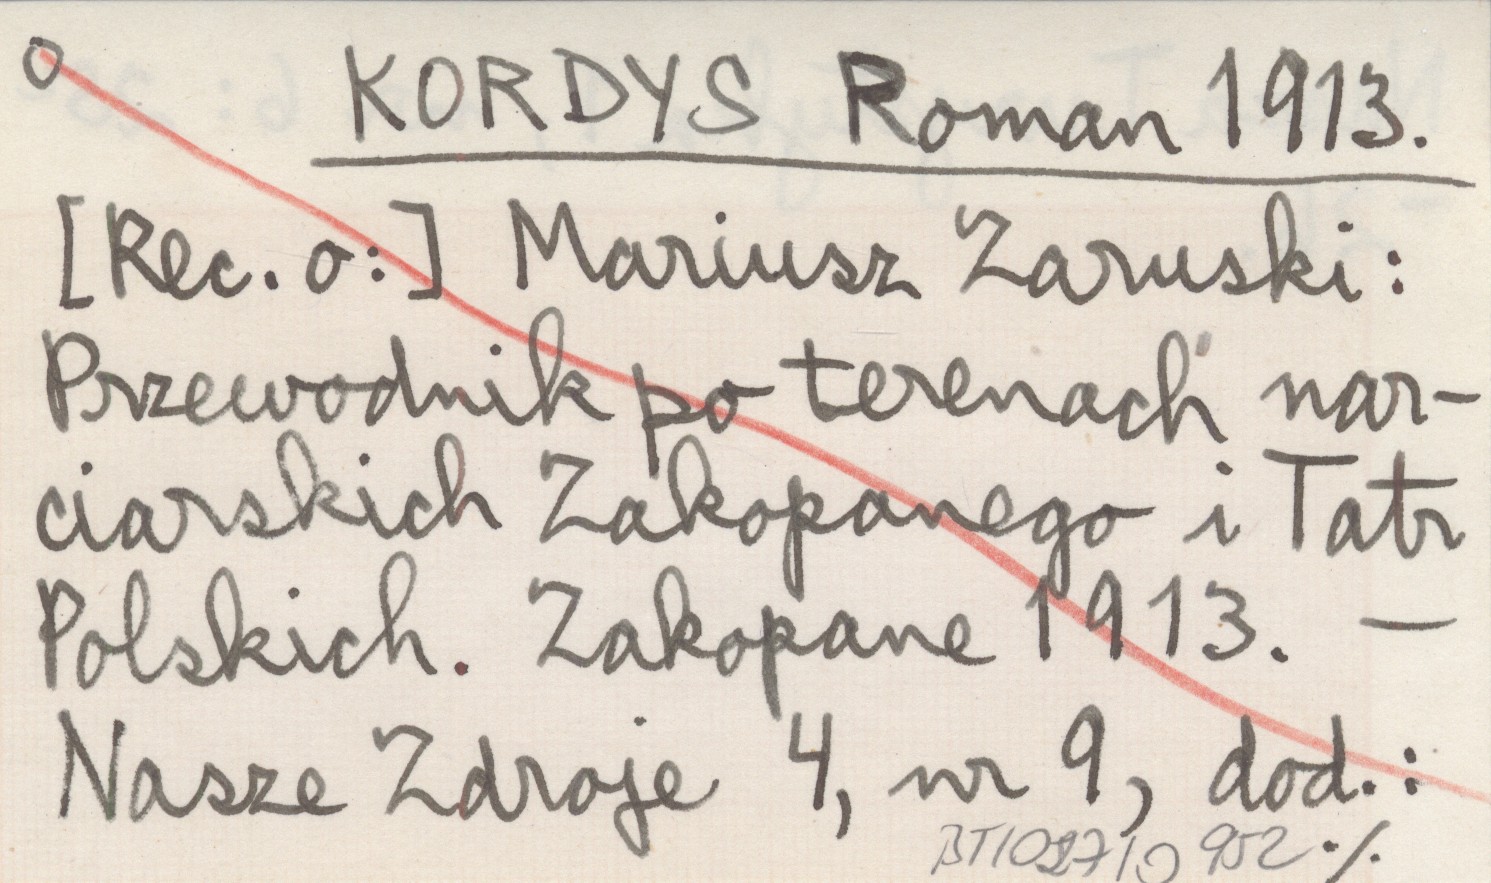 o KORDYS Roman 1913.
[Rec. o:] Mariusz Zaruski:
Przewodnik po terenach nar-
ciarskich Zakopanego i Tatr
Polskich. Zakopane 1913. —
Nasze Zdroje 4, nr 9, dod.:
952 ./.